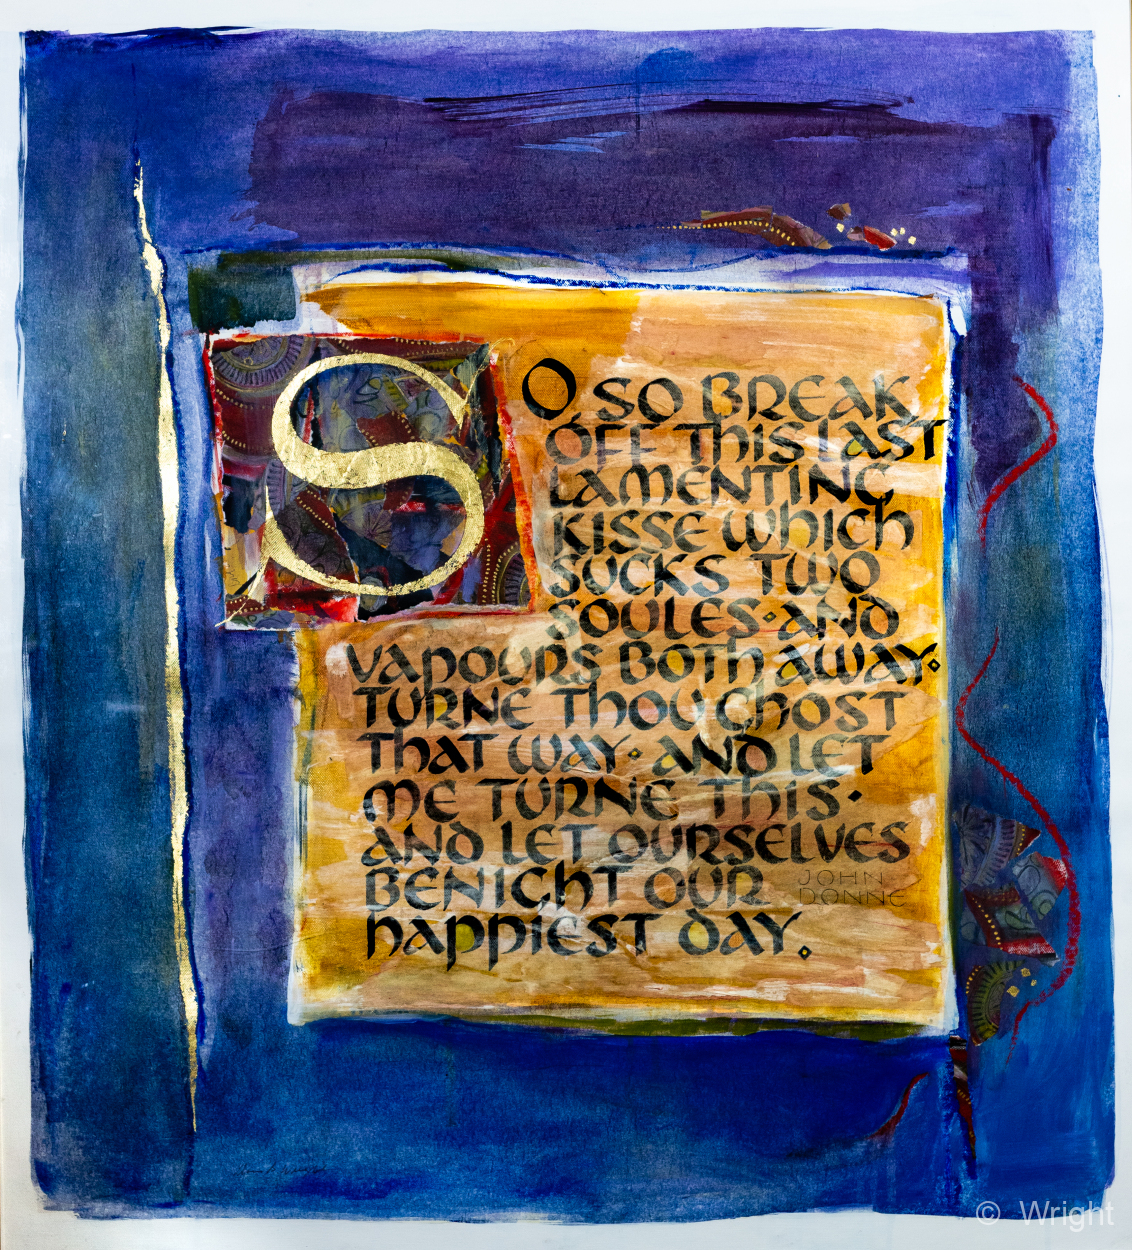 SO, SO BREAK
OFF THIS LAST
LAMENTING
KISSE WHICH
SUCKS TWO
SOULES·AND
VAPOURS BOTH AWAY·
TURNE THOU GHOST
THAT WAY·AND LET
ME TURNE THIS·
AND LET OURSELVES
BENIGHT OUR
HAPPIEST DAY.
JOHN
DONNE
© Wright